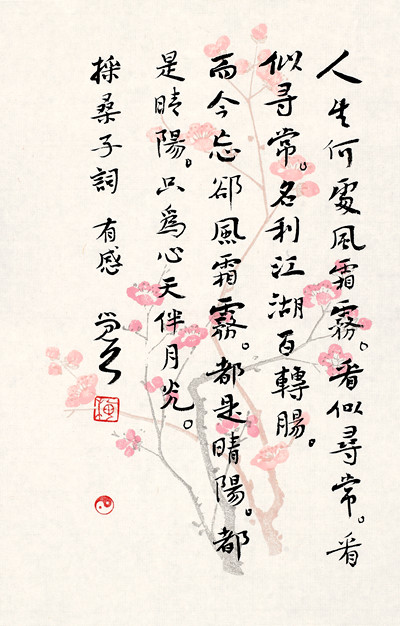 人生何處風霜霧。看似尋常。看
似尋常。名利江湖百轉腸。
而今忘郤風霜霧。都是晴陽。都
是晴陽。只為心天伴月光。
採桑子詞 有感